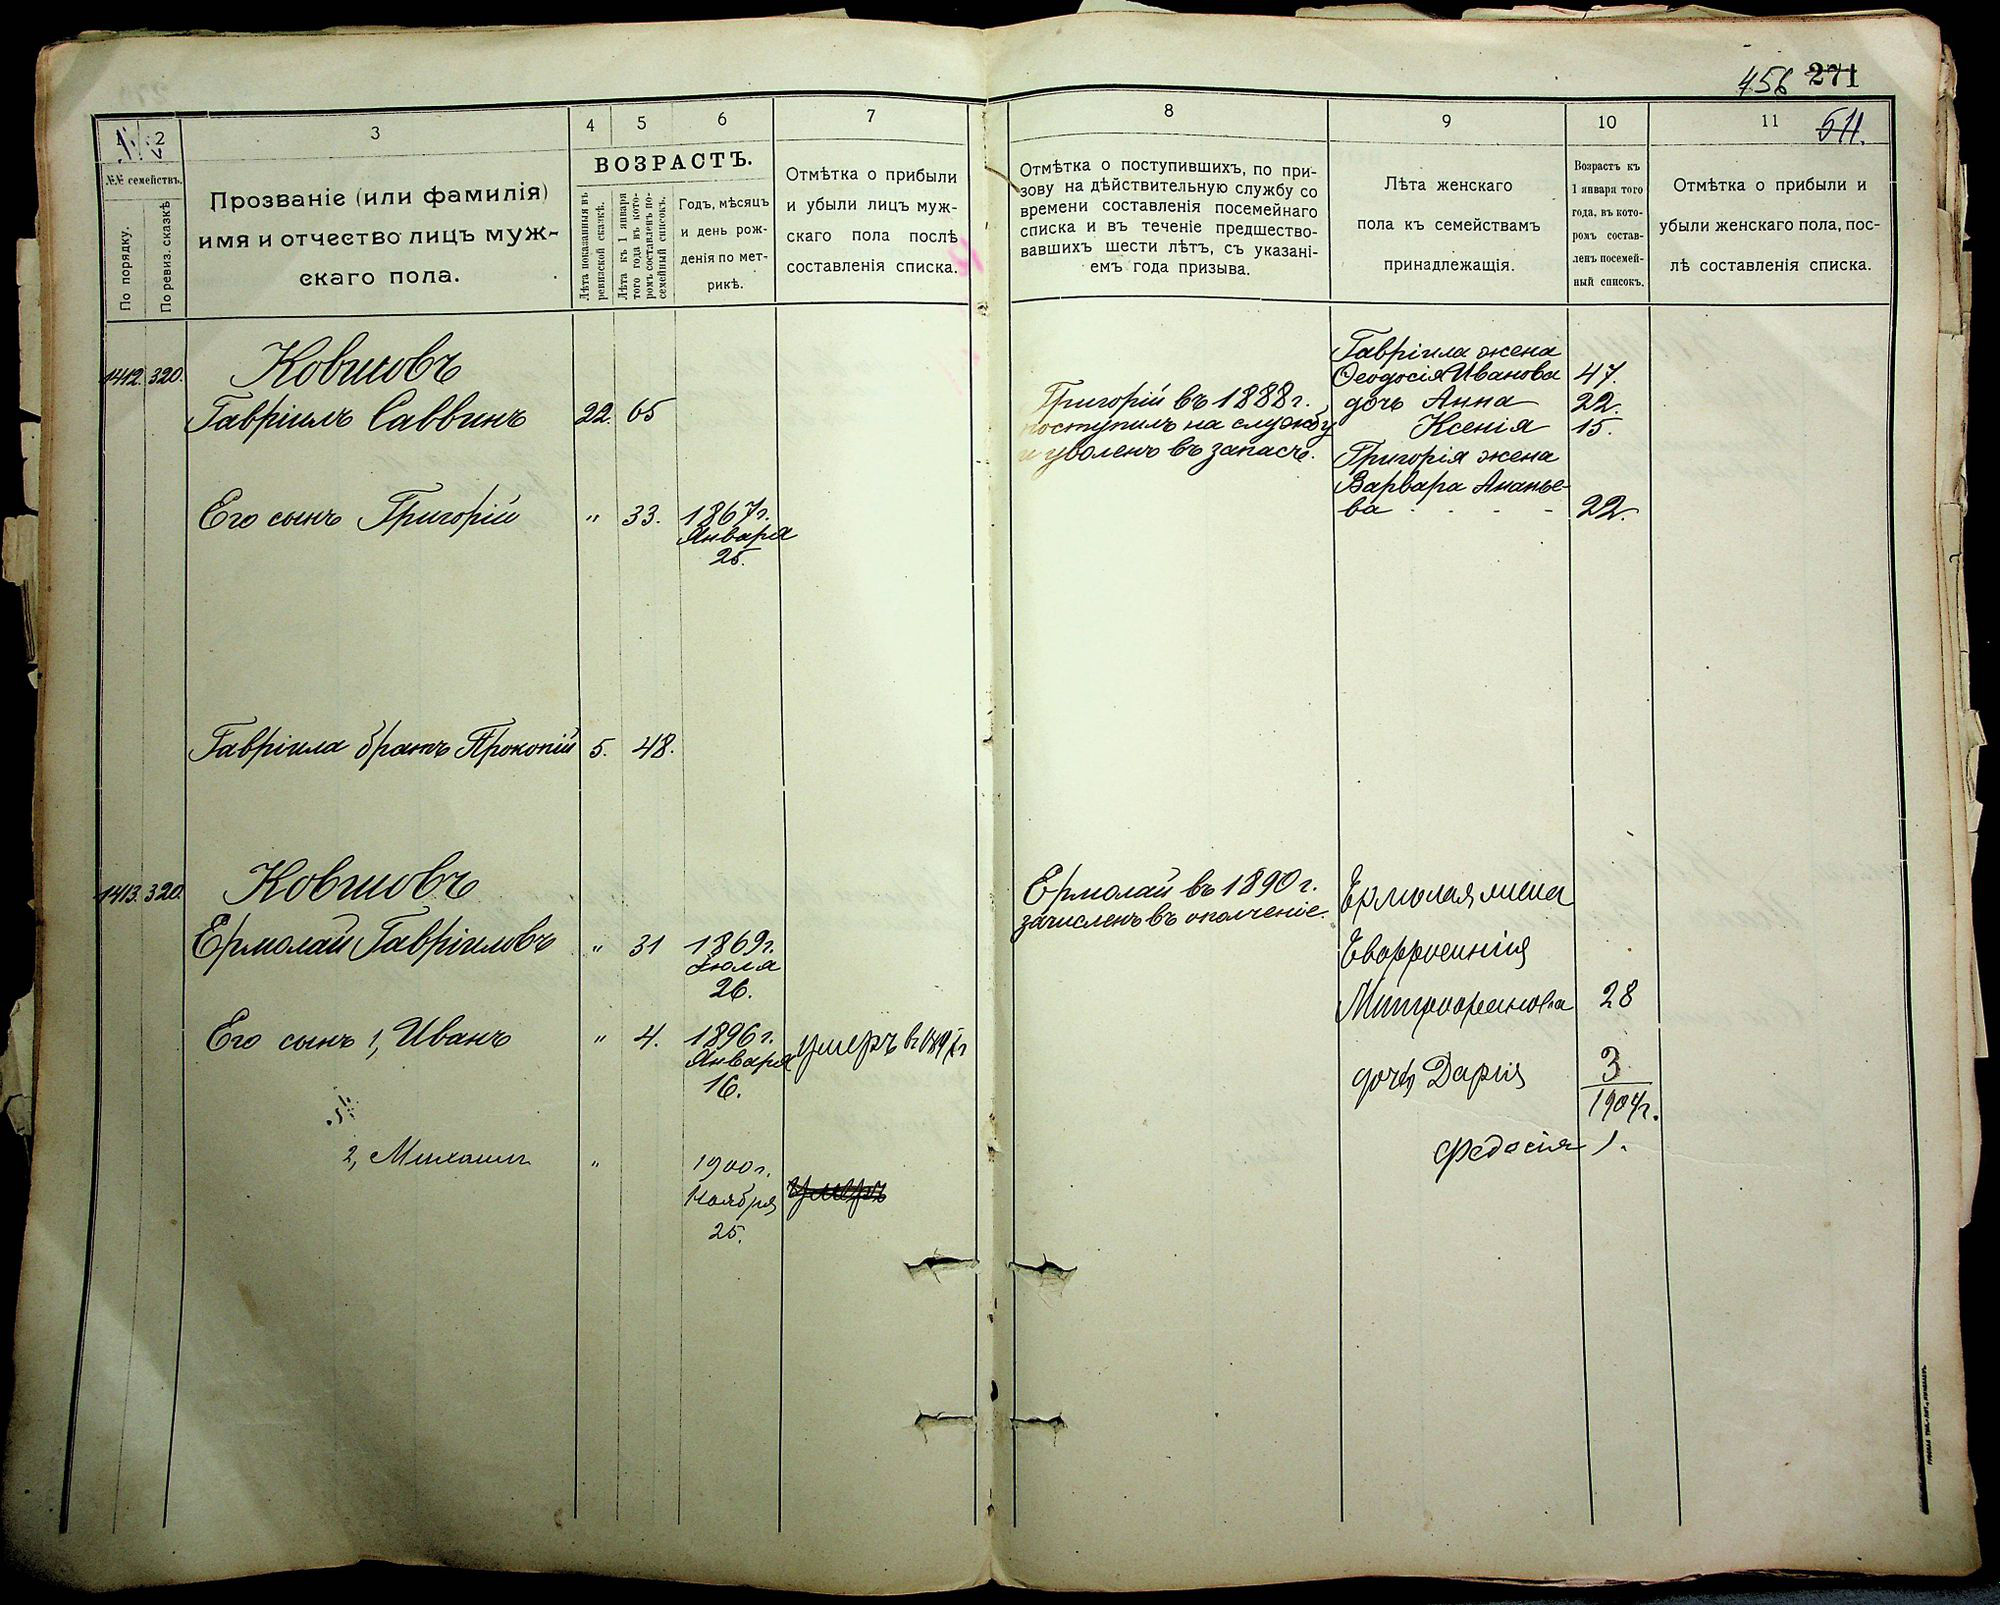 456 271
1 2 3 4 5 6 7 8 9 10 11 511.
№№ семействъ.
По порядку.
По ревиз. сказкѣ
Прозваніе (или фамилія)
имя и отчество лицъ муж-
скаго пола.
ВОЗРАСТЪ.
Лѣта показанныя въ
ревизской сказкѣ.
Лѣта къ 1 января
того года въ кото-
ромъ составленъ по-
семейный списокъ.
Годъ, мѣсяцъ
и день рож-
денія по мет-
рикѣ.
Отмѣтка о прибыли
и убыли лицъ муж-
скаго пола послѣ
составленія списка.
Отмѣтка о поступившихъ, по при-
зову на дѣйствительную службу со
времени составленія посемейнаго
списка и въ теченіе предшество-
вавшихъ шести лѣтъ, съ указані-
емъ года призыва.
Лѣта женскаго
пола къ семействамъ
принадлежащія.
Возрастъ къ
1 января того
года, въ кото-
ромъ состав-
ленъ посемей-
ный списокъ.
Отмѣтка о прибыли и
убыли женскаго пола, пос-
лѣ составленія списка.
1412. 320. Ковшовъ
Гавріилъ Саввинъ 22. 65
Его сынъ Григорій " 33. 1867г.
Января
25.
Гавріила братъ Прокопій 5. 48.
Григорій въ 1888г.
поступилъ на службу
и уволенъ въ запасъ.
Гавріила жена
Ѳеодосія Иванова 47.
дочь Анна 22.
Ксенія 15.
Григорія жена
Варвара Ананье-
ва - - - 22.
1413. 320. Ковшовъ
Ермолай Гавріиловъ " 31 1869г.
Іюля
26.
Его сынъ 1, Иванъ " 4. 1896г. умеръ в 1897г
Января
16.
2, Михаилъ " 1900г.
Ноября умеръ
25.
Ермолай въ 1890г.
зачисленъ въ ополченіе.
Ермолая жена
Евфросинія
Митрофанова 28
дочь Дарія 3
1904г.
Федосія 1.